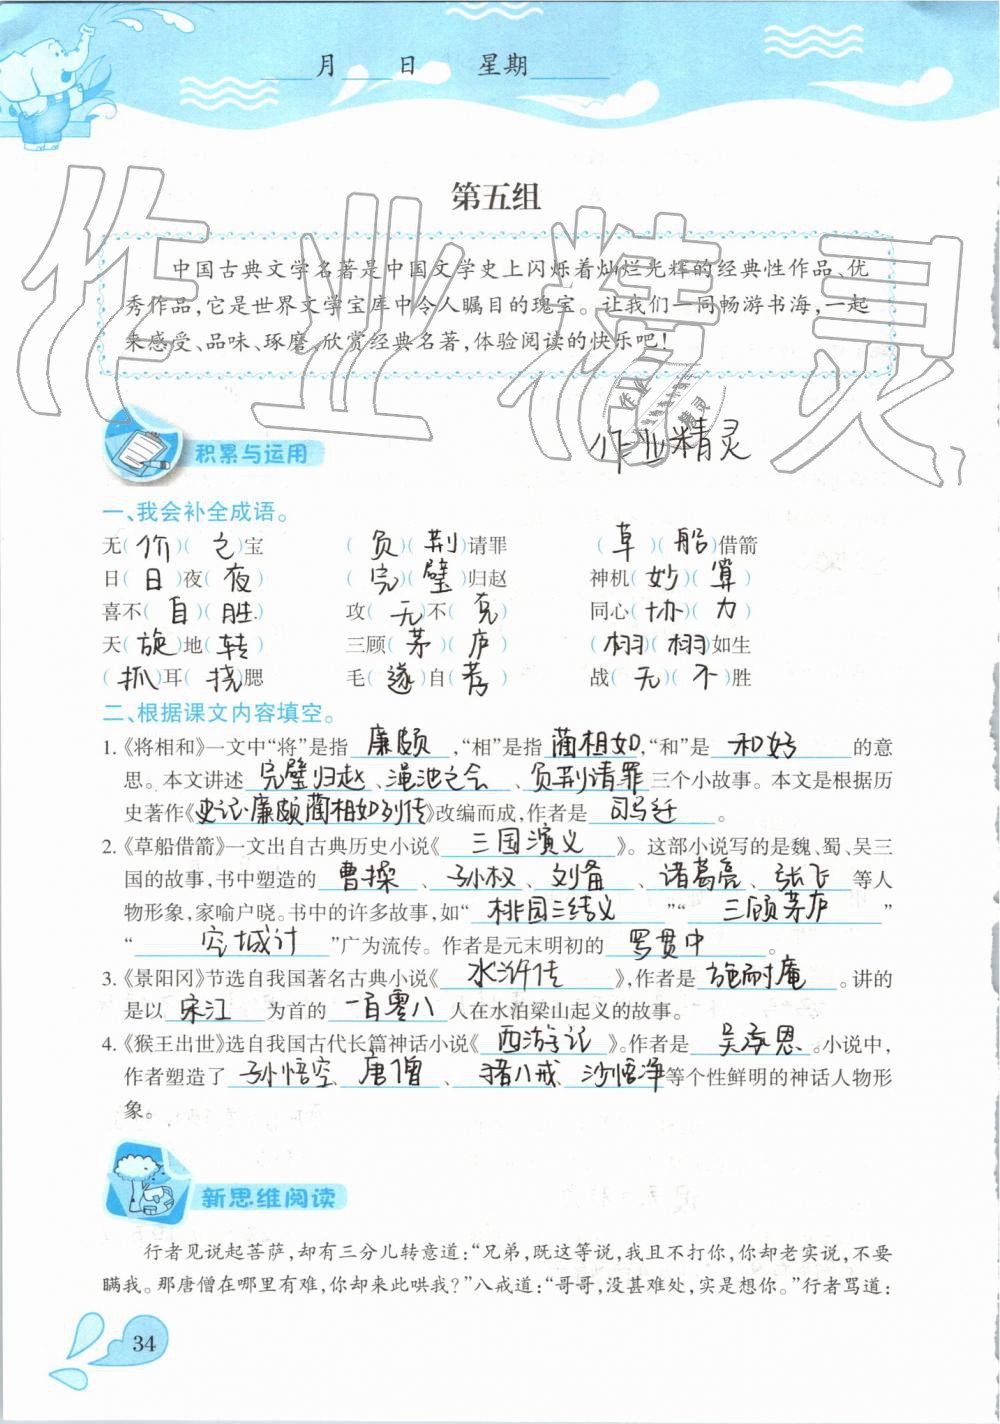 月 日 星期
第五组
中国古典文学名著是中国文学史上闪烁着灿烂光辉的经典性作品、优
秀作品，它是世界文学宝库中令人瞩目的瑰宝。让我们一同畅游书海，一起
来感受、品味、琢磨、欣赏经典名著，体验阅读的快乐吧！
作业精灵
积累与运用
作业精灵
一、我会补全成语。
无（价）（之）宝 （负）（荆）请罪 （草）（船）借箭
日（日）夜（夜） （完）（璧）归赵 神机（妙）（算）
喜不（自）（胜） 攻（无）不（克） 同心（协）（力）
天（旋）地（转） 三顾（茅）（庐） （栩）（栩）如生
（抓）耳（挠）腮 毛（遂）自（荐） 战（无）（不）胜
二、根据课文内容填空。
1.《将相和》一文中“将”是指 廉颇 ，“相”是指 蔺相如，“和”是 和好 的意
思。本文讲述 完璧归赵 、渑池之会 、负荆请罪 三个小故事。本文是根据历
史著作《史记·廉颇蔺相如列传》改编而成，作者是 司马迁 。
2.《草船借箭》一文出自古典历史小说《 三国演义 》。这部小说写的是魏、蜀、吴三
国的故事，书中塑造的 曹操 、孙权 、刘备 、诸葛亮 、张飞 等人
物形象，家喻户晓。书中的许多故事，如“ 桃园三结义 ”“ 三顾茅庐 ”
“ 空城计 ”广为流传。作者是元末明初的 罗贯中 。
3.《景阳冈》节选自我国著名古典小说《 水浒传 》，作者是 施耐庵 。讲的
是以 宋江 为首的 一百零八 人在水泊梁山起义的故事。
4.《猴王出世》选自我国古代长篇神话小说《 西游记 》。作者是 吴承恩 。小说中，
作者塑造了 孙悟空 、唐僧 、猪八戒 、沙悟净 等个性鲜明的神话人物形
象。
新思维阅读
行者见说起菩萨，却有三分儿转意道：“兄弟，既这等说，我且不打你，你却老实说，不要
瞒我。那唐僧在哪里有难，你却来此哄我？”八戒道：“哥哥，没甚难处，实是想你。”行者骂道：
34